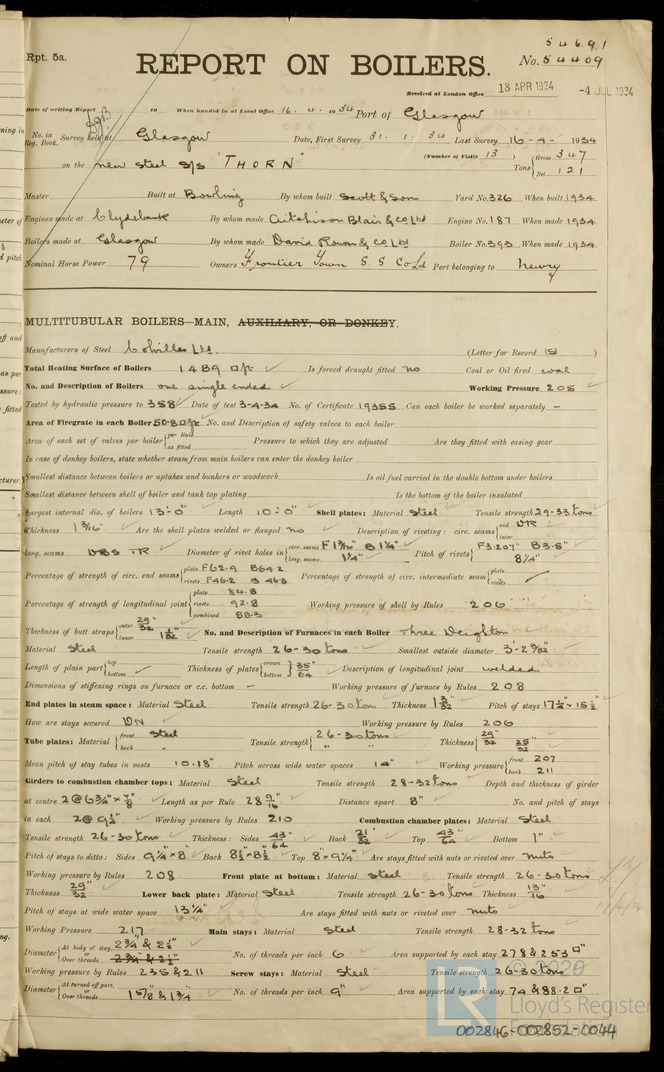 54691
Rpt. 5a. REPORT ON BOILERS. No. 54409
Received at London Office 18 APR 1934 -4 JUL 1934
Date of writing Report 19 When handed in at Local Office 16. 4. 1934 Port of Glasgow
No. in Reg. Book. Survey held at Glasgow Date, First Survey 31. 1. 34 Last Survey 16-4- 1934
on the new steel S/S "THORN" (Number of Visits 13) Tons Gross 347 Net 121
Master Built at Bowling By whom built Scott & Sons Yard No. 326 When built 1934
Engines made at Clydebank By whom made Aitchison Blair & Co Ltd Engine No. 187 When made 1934
Boilers made at Glasgow By whom made David Rowan & Co Ltd Boiler No. 393 When made 1934
Nominal Horse Power 79 Owners Frontier Town S.S. Co Ld Port belonging to Newry
MULTITUBULAR BOILERS—MAIN, AUXILIARY, OR DONKEY.
Manufacturers of Steel Colvilles Ltd. (Letter for Record (S) )
Total Heating Surface of Boilers 1489 Is forced draught fitted no Coal or Oil fired coal
No. and Description of Boilers one single ended Working Pressure 205
Tested by hydraulic pressure to 358 Date of test 3-4-34 No. of Certificate 19355 Can each boiler be worked separately –
Area of Firegrate in each Boiler 50.8 No. and Description of safety valves to each boiler
Area of each set of valves per boiler per Rule as fitted Pressure to which they are adjusted Are they fitted with easing gear
In case of donkey boilers, state whether steam from main boilers can enter the donkey boiler
Smallest distance between boilers or uptakes and bunkers or woodwork Is oil fuel carried in the double bottom under boilers
Smallest distance between shell of boiler and tank top plating Is the bottom of the boiler insulated
Largest internal dia. of boilers 13'-0" Length 10'-0" Shell plates: Material Steel Tensile strength 29-33 tons
Thickness 1 3/16" Are the shell plates welded or flanged no Description of riveting: circ. seams end DR inter.
long. seams DBS TR Diameter of rivet holes in circ. seams F 1 3/16" B 1 1/4" long. seams 1 1/4" Pitch of rivets F 3.207" B 3.5" 8 1/4"
Percentage of strength of circ. end seams plate F 62.9 B 64.2 rivets F 46.2 B 46.3 Percentage of strength of circ. intermediate seam plate rivets
Percentage of strength of longitudinal joint plate 84.8 rivets 92.8 combined 88.3 Working pressure of shell by Rules 206
Thickness of butt straps outer 29/32" inner 1 1/32" No. and Description of Furnaces in each Boiler Three Deighton
Material Steel Tensile strength 26-30 tons Smallest outside diameter 3'-2 9/32"
Length of plain part top bottom Thickness of plates crown bottom 35/64" Description of longitudinal joint welded
Dimensions of stiffening rings on furnace or c.c. bottom – Working pressure of furnace by Rules 208
End plates in steam space: Material Steel Tensile strength 26-30 tons Thickness 1 3/32" Pitch of stays 17 1/4" × 15 1/2"
How are stays secured DN Working pressure by Rules 206
Tube plates: Material front Steel back " Tensile strength 26-30 tons " " Thickness 29/32" 25/32"
Mean pitch of stay tubes in nests 10.18" Pitch across wide water spaces 14" Working pressure front 207 back 211
Girders to combustion chamber tops: Material Steel Tensile strength 28-32 tons Depth and thickness of girder
at centre 2 @ 6 3/4" × 7/8" Length as per Rule 28 9/16" Distance apart 8" No. and pitch of stays
in each 2 @ 9 1/4" Working pressure by Rules 210 Combustion chamber plates: Material Steel
Tensile strength 26-30 tons Thickness: Sides 43/64" Back 21/32" Top 43/64" Bottom 1"
Pitch of stays to ditto: Sides 9 1/4" × 8" Back 8 1/2" × 8 1/2" Top 8" × 9 1/4" Are stays fitted with nuts or riveted over nuts
Working pressure by Rules 208 Front plate at bottom: Material Steel Tensile strength 26-30 tons
Thickness 29/32" Lower back plate: Material Steel Tensile strength 26-30 tons Thickness 13/16"
Pitch of stays at wide water space 13 1/4" Are stays fitted with nuts or riveted over nuts
Working Pressure 217 Main stays: Material Steel Tensile strength 28-32 tons
Diameter At body of stay, or Over threads 2 3/4" & 2 1/2" No. of threads per inch 6 Area supported by each stay 278 & 253 □"
Working pressure by Rules 235 & 211 Screw stays: Material Steel Tensile strength 26-30 tons
Diameter At turned off part, or Over threads 1 5/8" & 1 3/4" No. of threads per inch 9" Area supported by each stay 74 & 88.2 □"
© 2020
LR Lloyd's Register Foundation
002846-002852-0044